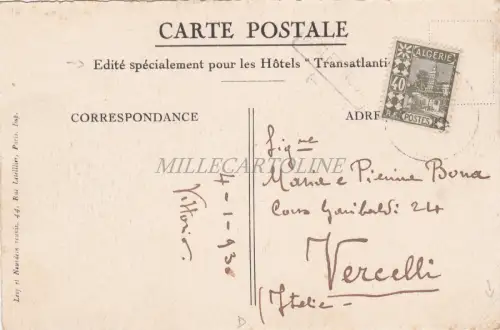 CARTE POSTALE
Edité spécialement pour les Hôtels "Transatlanti
CORRESPONDANCE
ADRE
ALGERIE
40
POSTES
MILLECARTOLINE
4-1-930
Vittorio.
Sigre
Marie e Pierina Bona
Corso Garibaldi 24
Vercelli
(Italie)
Levy et Neurdein réunis, 44, Rue Letellier, Paris. Imp.